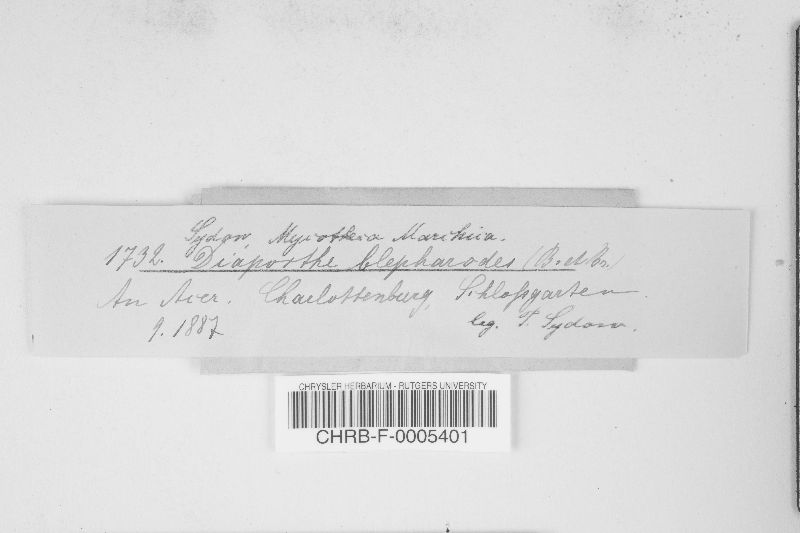 Sydow, Mycotheca Marchica.
1732. Diaporthe blepharodes (B. et Br.)
An Acer. Charlottenburg, Schloßgarten.
9. 1887 leg. P. Sydow.
CHRYSLER HERBARIUM - RUTGERS UNIVERSITY
CHRB-F-0005401